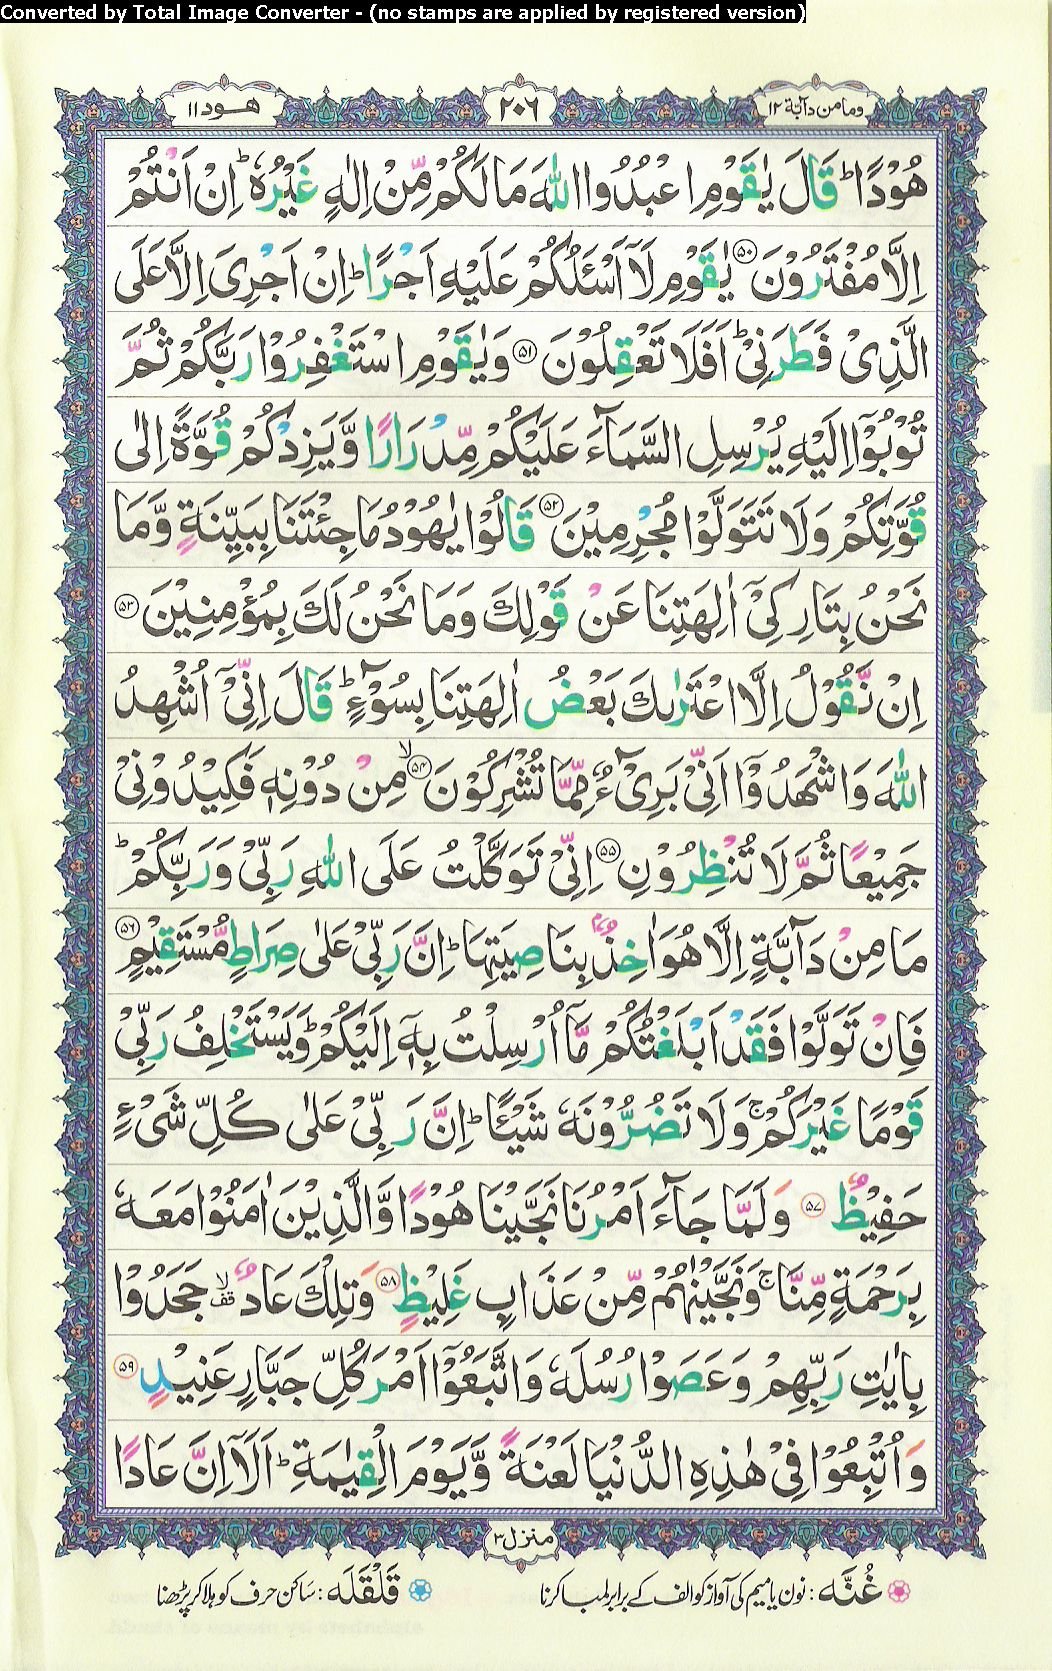 Converted by Total Image Converter - (no stamps are applied by registered version)
وما من دآبة ١٢
٢٠٦
هود ١١
هُوْدًا ؕ قَالَ يٰقَوْمِ اعْبُدُوا اللّٰهَ مَا لَكُمْ مِّنْ اِلٰهٍ غَيْرُهٗ ؕ اِنْ اَنْتُمْ
اِلَّا مُفْتَرُوْنَ ﴿۵۰﴾ يٰقَوْمِ لَاۤ اَسْـَٔلُكُمْ عَلَيْهِ اَجْرًا ؕ اِنْ اَجْرِىَ اِلَّا عَلَى
الَّذِىْ فَطَرَنِىْ ؕ اَفَلَا تَعْقِلُوْنَ ﴿۵۱﴾ وَيٰقَوْمِ اسْتَغْفِرُوْا رَبَّكُمْ ثُمَّ
تُوْبُوْۤا اِلَيْهِ يُرْسِلِ السَّمَآءَ عَلَيْكُمْ مِّدْرَارًا وَّيَزِدْكُمْ قُوَّةً اِلٰى
قُوَّتِكُمْ وَلَا تَتَوَلَّوْا مُجْرِمِيْنَ ﴿۵۲﴾ قَالُوْا يٰهُوْدُ مَا جِئْتَنَا بِبَيِّنَةٍ وَّمَا
نَحْنُ بِتَارِكِىْۤ اٰلِهَتِنَا عَنْ قَوْلِكَ وَمَا نَحْنُ لَكَ بِمُؤْمِنِيْنَ ﴿۵۳﴾
اِنْ نَّقُوْلُ اِلَّا اعْتَرٰىكَ بَعْضُ اٰلِهَتِنَا بِسُوْٓءٍ ؕ قَالَ اِنِّىْۤ اُشْهِدُ
اللّٰهَ وَاشْهَدُوْۤا اَنِّىْ بَرِىْٓءٌ مِّمَّا تُشْرِكُوْنَ ﴿۵۴﴾ۙ مِنْ دُوْنِهٖ فَكِيْدُوْنِىْ
جَمِيْعًا ثُمَّ لَا تُنْظِرُوْنِ ﴿۵۵﴾ اِنِّىْ تَوَكَّلْتُ عَلَى اللّٰهِ رَبِّىْ وَرَبِّكُمْ ؕ
مَا مِنْ دَآبَّةٍ اِلَّا هُوَ اٰخِذٌۢ بِنَاصِيَتِهَا ؕ اِنَّ رَبِّىْ عَلٰى صِرَاطٍ مُّسْتَقِيْمٍ ﴿۵۶﴾
فَاِنْ تَوَلَّوْا فَقَدْ اَبْلَغْتُكُمْ مَّاۤ اُرْسِلْتُ بِهٖۤ اِلَيْكُمْ ؕ وَيَسْتَخْلِفُ رَبِّىْ
قَوْمًا غَيْرَكُمْ ۚ وَلَا تَضُرُّوْنَهٗ شَيْـًٔا ؕ اِنَّ رَبِّىْ عَلٰى كُلِّ شَىْءٍ
حَفِيْظٌ ﴿۵۷﴾ وَلَمَّا جَآءَ اَمْرُنَا نَجَّيْنَا هُوْدًا وَّالَّذِيْنَ اٰمَنُوْا مَعَهٗ
بِرَحْمَةٍ مِّنَّا ۚ وَنَجَّيْنٰهُمْ مِّنْ عَذَابٍ غَلِيْظٍ ﴿۵۸﴾ وَتِلْكَ عَادٌ ۙ قف جَحَدُوْا
بِاٰيٰتِ رَبِّهِمْ وَعَصَوْا رُسُلَهٗ وَاتَّبَعُوْۤا اَمْرَ كُلِّ جَبَّارٍ عَنِيْدٍ ﴿۵۹﴾
وَاُتْبِعُوْا فِىْ هٰذِهِ الدُّنْيَا لَعْنَةً وَّيَوْمَ الْقِيٰمَةِ ؕ اَلَاۤ اِنَّ عَادًا
منزل ٣
غُنَّه : نون یا میم کی آواز کو الف کے برابر لمبا کرنا
قَلْقَلَه : ساکن حرف کو ہلا کر پڑھنا